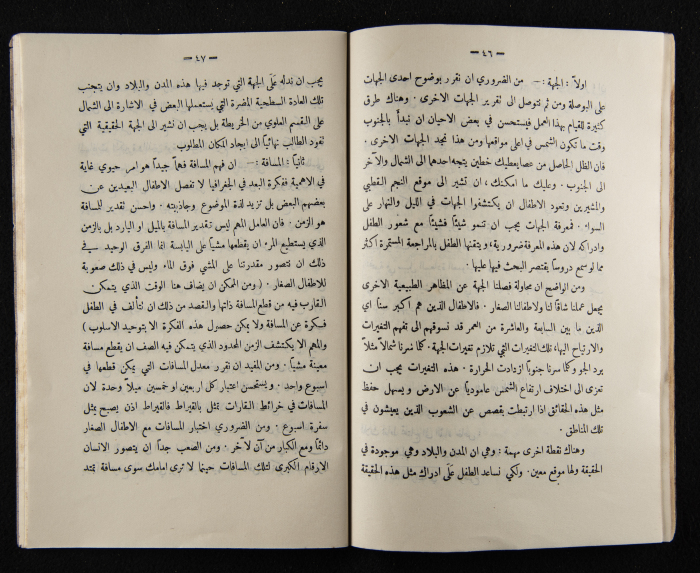 — ٤٦ —
اولاً: الجهة: — من الضروري ان نقرر بوضوح احدى الجهات
على البوصلة ومن ثم نتوصل الى تقرير الجهات الاخرى. وهناك طرق
كثيرة للقيام بهذا العمل فيستحسن في بعض الاحيان ان تبدأ بالجنوب
وقت ما تكون الشمس في اعلى مواقعها ومن هذا نجد الجهات الاخرى.
فان الظل الحاصل من عصا يعطيك خطين يتجه احدهما الى الشمال والآخر
الى الجنوب. وعليك ما امكنك، ان تشير الى موقع النجم القطبي
والمشيرين وتعود الاطفال ان يكتشفوا الجهات في الليل والنهار على
السواء. فمعرفة الجهات يجب ان تنمو شيئاً فشيئاً مع شعور الطفل
وادراكه لان هذه المعرفة ضرورية، ويتقنها الطفل بالمراجعة المستمرة اكثر
مما لو سمع دروساً يقتصر البحث فيها عليها.
ومن الواضح ان محاولة فصلنا الجهة عن المظاهر الطبيعية الاخرى
يجعل عملنا شاقاً لنا ولاطفالنا الصغار. فالاطفال الذين هم اكبر سناً اي
الذين ما بين السابعة والعاشرة من العمر قد نسوقهم الى تفهم التغيرات
والارتياح اليها، تلك التغيرات التي تلازم تغيرات الجهة. كلما سرنا شمالاً مثلاً
برد الجو وكلما سرنا جنوباً ازدادت الحرارة. هذه التغيرات يجب ان
تعزى الى اختلاف ارتفاع الشمس عامودياً عن الارض ويسهل حفظ
مثل هذه الحقائق اذا ارتبطت بقصص عن الشعوب الذين يعيشون في
تلك المناطق.
وهناك نقطة اخرى مهمة: وهي ان المدن والبلاد وهي موجودة في
الحقيقة ولها موقع معين. ولكي نساعد الطفل على ادراك مثل هذه الحقيقة
— ٤٧ —
يجب ان ندله على الجهة التي توجد فيها هذه المدن والبلاد وان يتجنب
تلك العادة السطحية المضرة التي يستعملها البعض في الاشارة الى الشمال
على القسم العلوي من الخريطة بل يجب ان نشير الى الجهة الحقيقية التي
تقود الطالب نهائياً الى ايجاد المكان المطلوب
ثانياً: المسافة: — ان فهم المسافة فهماً جيداً هو امر حيوي غاية
في الاهمية ففكرة البعد في الجغرافيا لا تفصل الاطفال البعيدين عن
بعضهم البعض بل تزيد لذة الموضوع وجاذبيته. واحسن تقدير للمسافة
هو الزمن. فان العامل المهم ليس تقدير المسافة بالميل او اليارد بل بالزمن
الذي يستطيع المرء ان يقطعها مشياً على اليابسة انما الفرق الوحيد في
ذلك ان نتصور مقدرتنا على المشي فوق الماء وليس في ذلك صعوبة
للاطفال الصغار. (ومن الممكن ان يضاف هنا الوقت الذي يتمكن
القارب فيه من قطع المسافة ذاتها والقصد من ذلك ان تتألف في الطفل
فكرة عن المسافة ولا يمكن حصول هذه الفكرة الا بتوحيد الاسلوب)
والمهم الا يكتشف الزمن المحدود الذي يتمكن فيه الصف ان يقطع مسافة
معينة مشياً. ومن المفيد ان نقرر معدل المسافات التي يمكن قطعها في
اسبوع واحد. ويستحسن اعتبار كل اربعين او خمسين ميلاً وحدة لان
المسافات في خرائط القارات تمثل بالقيراط فالقيراط اذن يصبح يمثل
سفرة اسبوع. ومن الضروري اختبار المسافات مع الاطفال الصغار
دائماً ومع الكبار من آن لآخر. ومن الصعب جداً ان يتصور الانسان
الارقام الكبرى لتلك المسافات حينما لا ترى امامك سوى مسافة تمتد